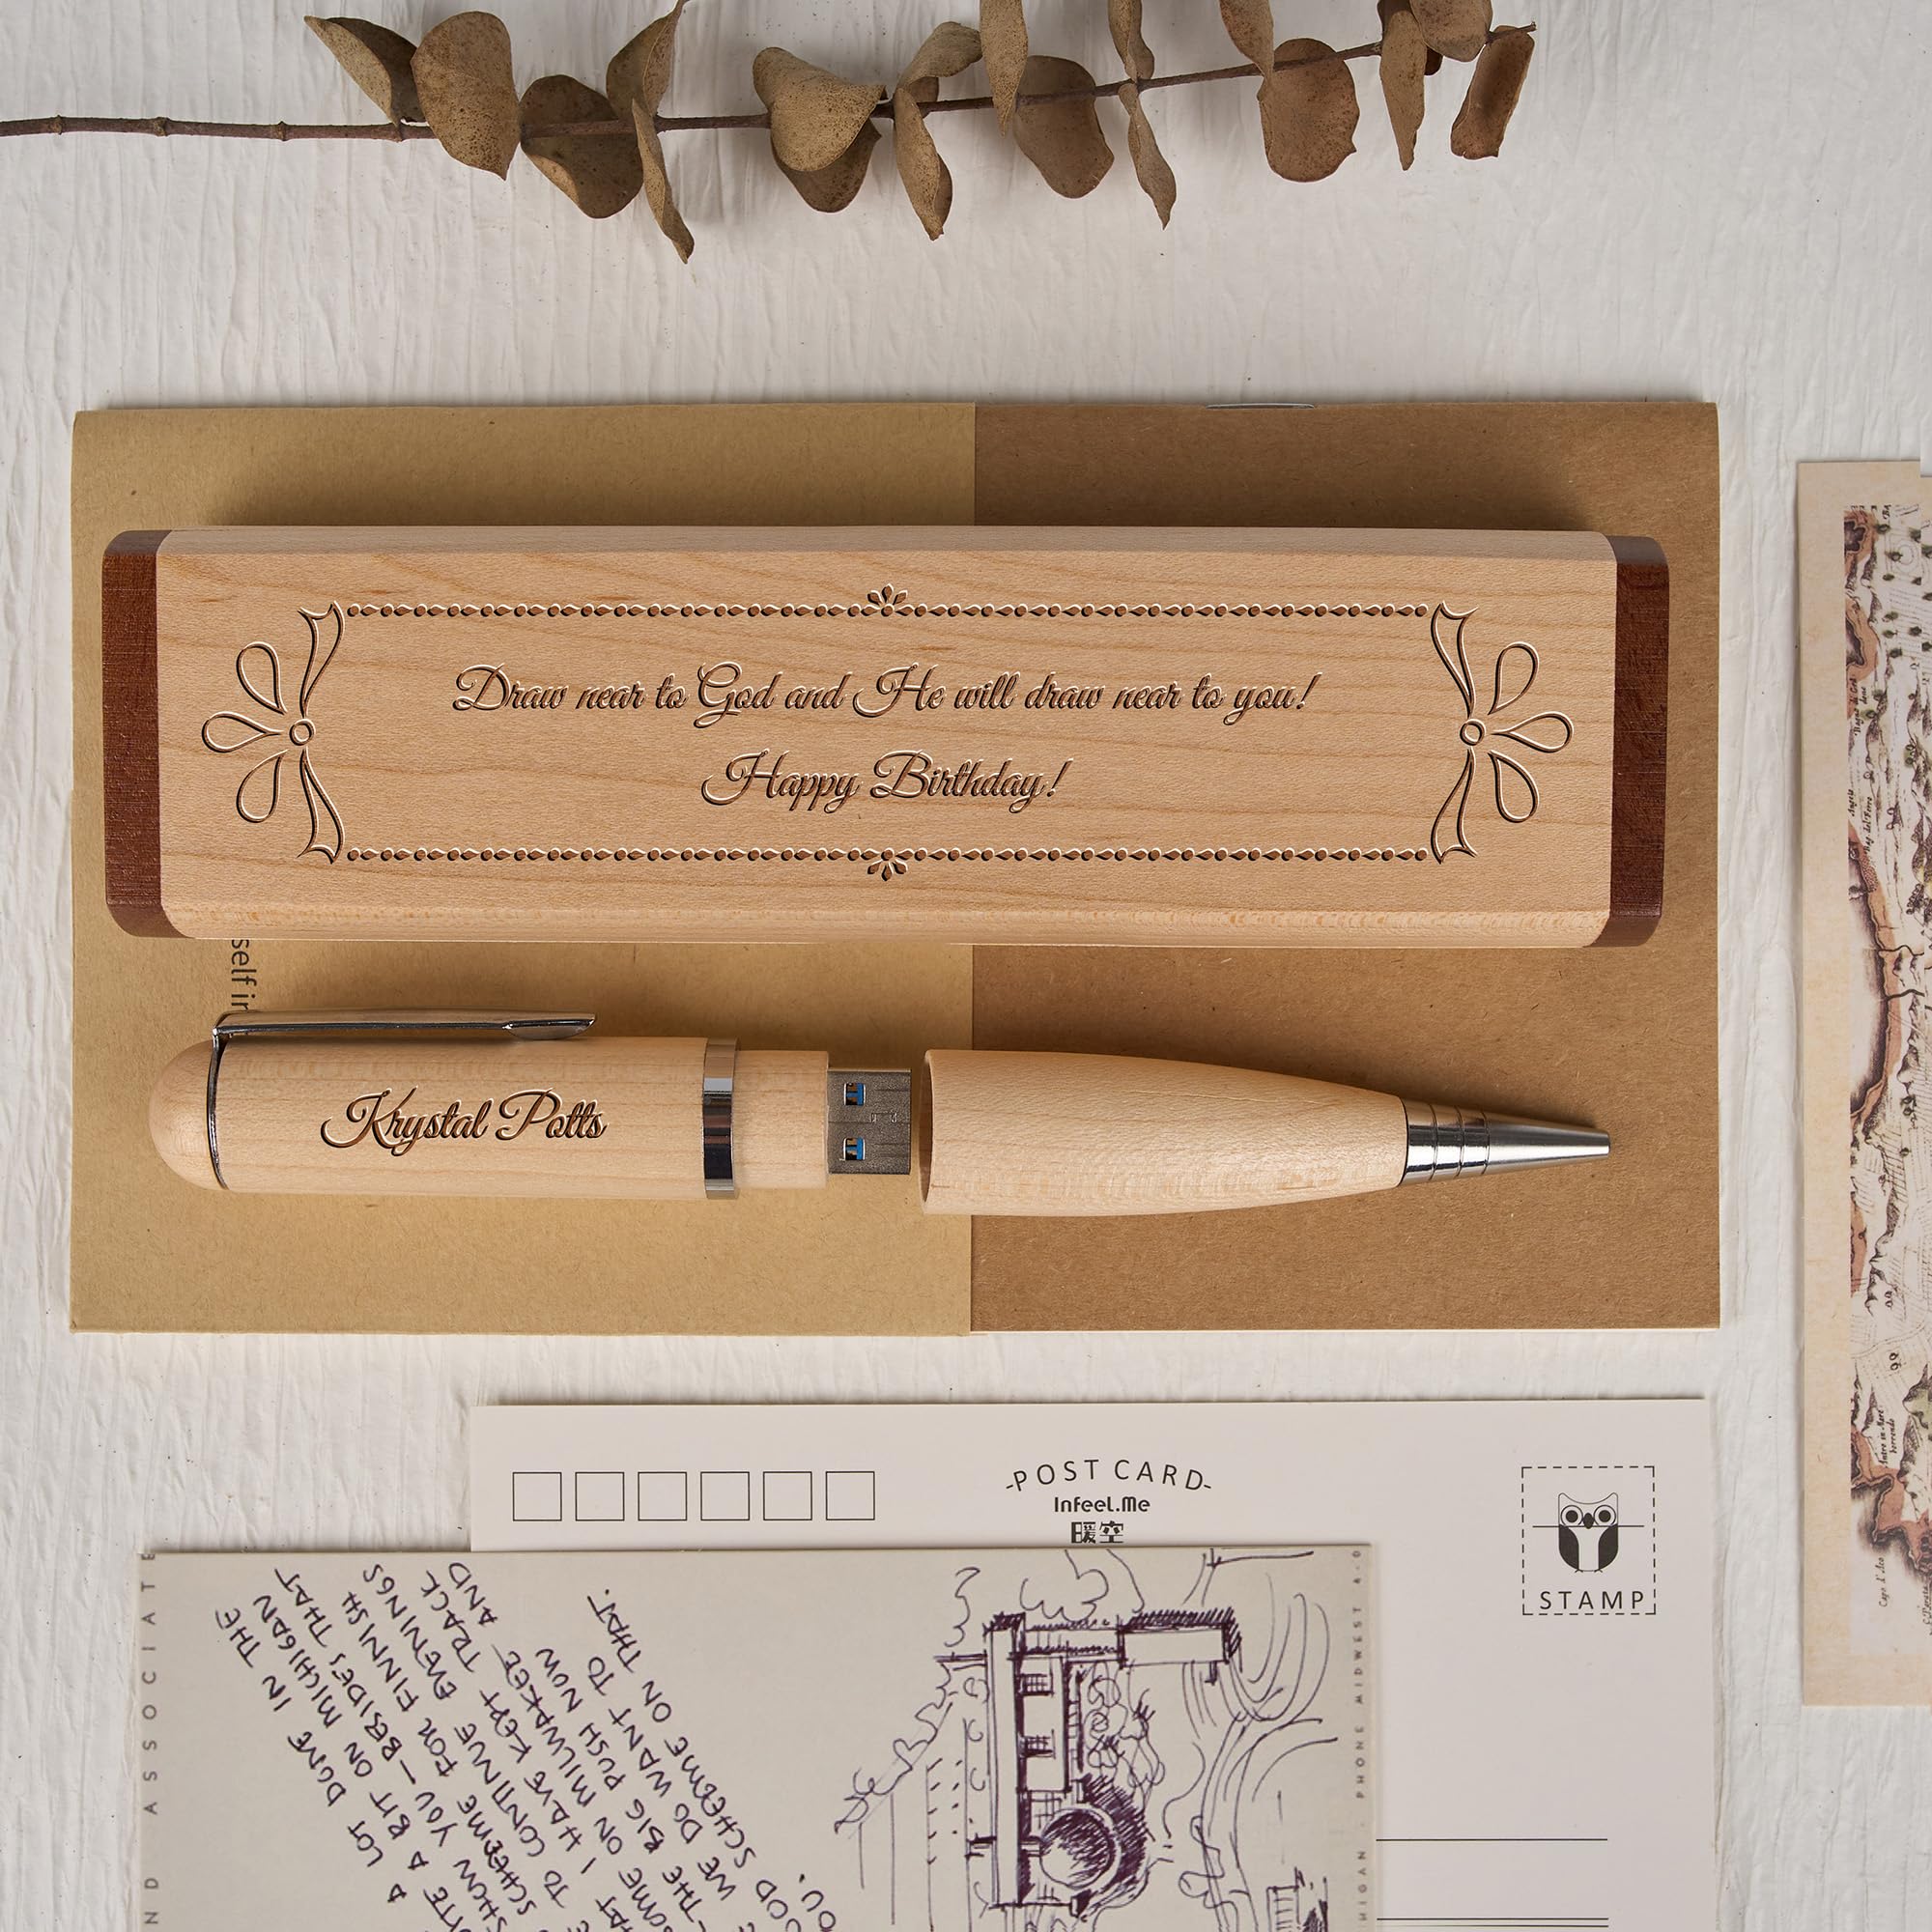 Draw near to God and He will draw near to you!
Happy Birthday!
self in
Krystal Potts
-POST CARD-
InFeel.Me
暖空
STAMP
ND ASSOCIATE
A LOT DONE IN THE
BIT ON MICHIGAN
SHOW YOU — BESIDES THAT
SCHEME FOR FINNISH
TO CONTINUE EVENINGS
I HAVE KEPT TRACK
SOME ON MILWAUKEE AND
THE BIG PUSH NOW
WE DO WANT TO
GOOD SCHEME ON THAT.
HIGAN · PHONE MIDWEST 4-0